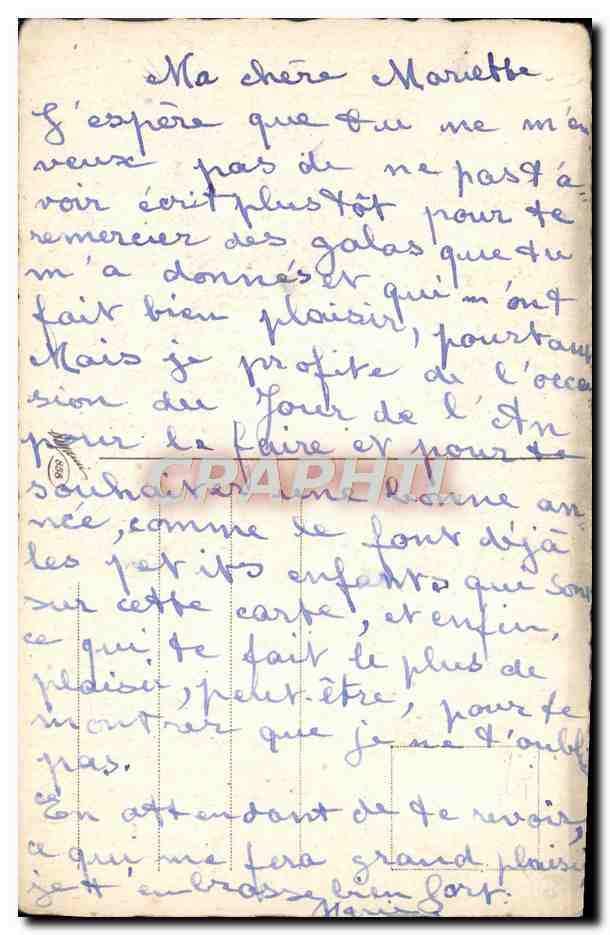 Ma chère Mariette
J'espère que tu ne m'en
veux pas de ne pas t'a-
voir écrit plus tôt pour te
remercier des galas que tu
m'a donnés et qui m'ont
fait bien plaisir, pourtant
Mais je profite de l'occa
sion du Jour de l'An
pour le faire et pour te
CPAPHIL
858
souhaiter une bonne an-
née, comme le font déjà
les petits enfants qui sont
sur cette carte, et enfin,
ce qui te fait le plus de
plaisir, peut-être, pour te
montrer que je ne t'oubli
pas.
En attendant de te revoir,
ce qui me fera grand plaisi
je t'embrasse bien fort.